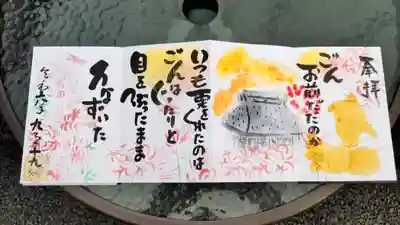 奉拝
ごん
お前だったのか
いつも栗をくれたのは
ごんはぐったりと
目をつぶったまま
うなずいた
令和六年九月十九日